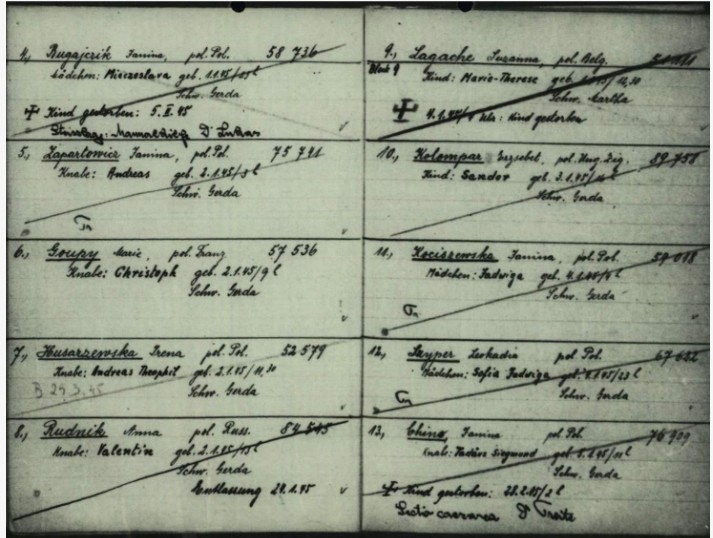 4., Bugajczik Janina, pol. Pol. 58 736
Mädchen: Mieczeslava geb. 1.1.45/15 h
Schw. Gerda
Kind gestorben: 5.II.45
5., Zapartowicz Janina, pol. Pol. 75 791
Knabe: Andreas geb. 2.1.45/3 h
Schw. Gerda
6., Goupy Marie, pol. Franz 57 536
Knabe: Christoph geb. 2.1.45/9 h
Schw. Gerda
7., Husarzewska Irena pol. Pol. 52 579
Knabe: Andreas Theophil geb. 2.1.45/11,30
Schw. Gerda
B 29.3.45
8., Rudnik Anna pol. Russ. 84 545
Knabe: Valentin geb. 2.1.45/15 h
Schw. Gerda
Entlassung 28.1.45
9., Lagache Suzanna, pol. Belg.
Block 9 Kind: Marie-Therese geb.
Schw. Martha
Kind gestorben
10., Kolompar Erzsebet, pol. Ung. Zig. 89 758
Kind: Sandor geb. 3.1.45
Schw. Gerda
11., Kociszewska Janina, pol. Pol. 59 018
Mädchen: Jadwiga geb. 4.1.45
Schw. Gerda
12., Szyper Leokadia pol. Pol. 67 632
Mädchen: Sofia Jadwiga geb.
Schw. Gerda
13., Janina pol. Pol. 76 909
Knabe: geb. 5.1.45
Schw. Gerda
Kind gestorben: 28.2.45/2 h
Sectio caesarea Dr Treite